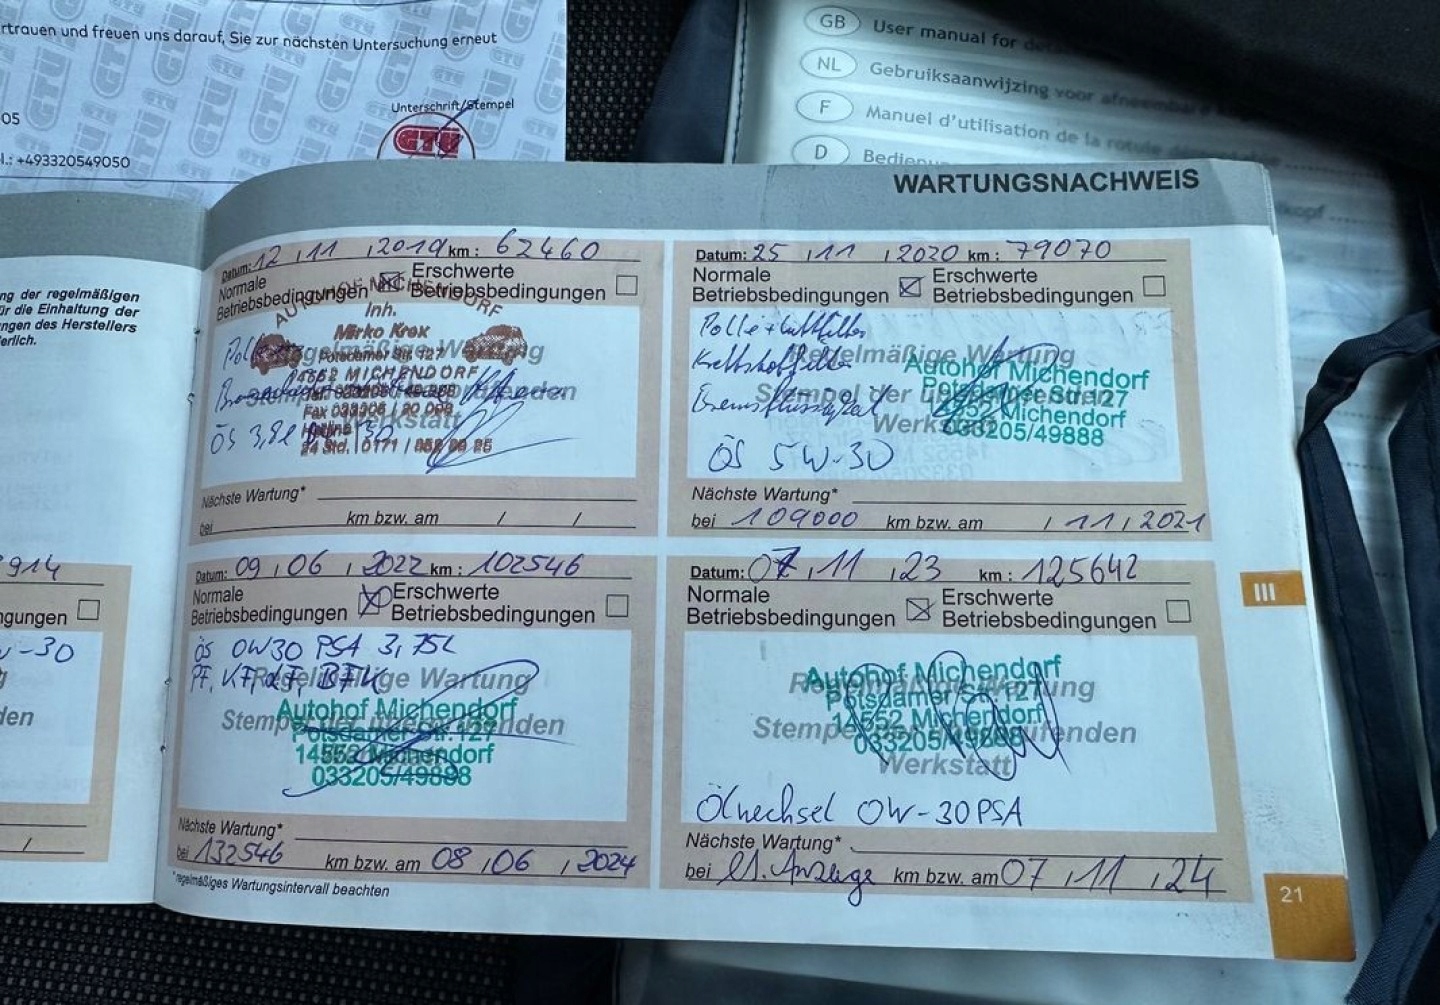 rtrauen und freuen uns darauf, Sie zur nächsten Untersuchung erneut
Unterschrift/Stempel
GTÜ
05
l.: +493320549050
GB User manual for
NL Gebruiksaanwijzing voor
F Manuel d'utilisation de la rotule
D
WARTUNGSNACHWEIS
ng der regelmäßigen
ür die Einhaltung der
ngen des Herstellers
erlich.
914
ngungen
-30
den
/
Datum: 12 11 2019 km: 62460
Normale Betriebsbedingungen
Erschwerte Betriebsbedingungen
Regelmäßige Wartung
Werkstatt
AUTOHOF MICHENDORF
Inh.
Mirko Krex
Potsdamer Str. 127
14552 MICHENDORF
Fax 033205 / 20 009
24 Std. 0171 /
ÖS 3,8l
Nächste Wartung*
bei km bzw. am / /
Datum: 25 11 2020 km: 79070
Normale Betriebsbedingungen
Erschwerte Betriebsbedingungen
Polle + Luftfilter
Kraftstofffilter
Bremsflüssigkeit
ÖS 5W-30
Regelmäßige Wartung
Stempel der
Werkstatt
Autohof Michendorf
Potsdamer Str. 127
14552 Michendorf
033205/49888
Nächste Wartung*
bei 109000 km bzw. am / 11 / 2021
Datum: 09 06 2022 km: 102546
Normale Betriebsbedingungen
Erschwerte Betriebsbedingungen
ÖS 0W30 PSA 3,75L
PF, KF, LF, BFW
Regelmäßige Wartung
Stempel der ausführenden
Autohof Michendorf
Potsdamer Str. 127
14552 Michendorf
033205/49888
Nächste Wartung*
bei 132546 km bzw. am 08 06 2024
*regelmäßiges Wartungsintervall beachten
Datum: 07 11 23 km: 125642
Normale Betriebsbedingungen
Erschwerte Betriebsbedingungen
Regelmäßige Wartung
Stempel der ausführenden
Werkstatt
Autohof Michendorf
Potsdamer Str. 127
14552 Michendorf
033205/49888
Ölwechsel 0W-30 PSA
Nächste Wartung*
bei lt. Anzeige km bzw. am 07 11 24
III
21